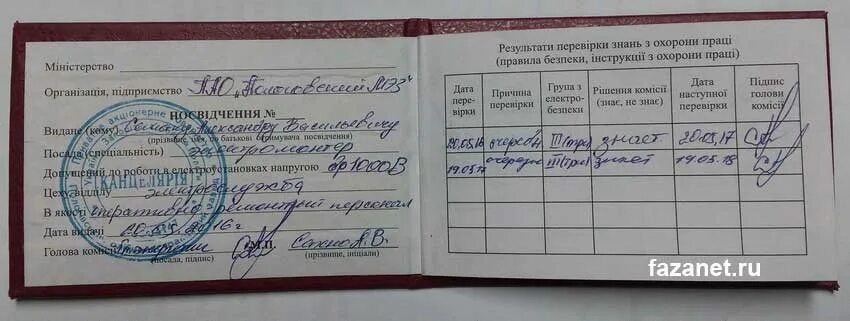 Міністерство
Організація, підприємство ПАО „Пологовский МЭЗ“
ПОСВІДЧЕННЯ №
Видане (кому) Александру Васильевичу
(прізвище, по батькові отримувача посвідчення)
Посада (спеціальність) электромонтер
Допущений до роботи в електроустановках напругою до 1000В
Цеху, відділу электрослужба
В якості оперативно-ремонтный персонал
Дата видачі 20.05.2016г
Голова комісії М.П. Сахно А.В.
(посада, підпис) (прізвище, ініціали)
КАНЦЕЛЯРІЯ
Результати перевірки знань з охорони праці
(правила безпеки, інструкції з охорони праці)
Дата перевірки Причина перевірки Група з електробезпеки Рішення комісії (знає, не знає) Дата наступної перевірки Підпис голови комісії
20.05.16 очередн III (три) знает 20.05.17
19.05.17 очередн III (три) знает 19.05.18
fazanet.ru